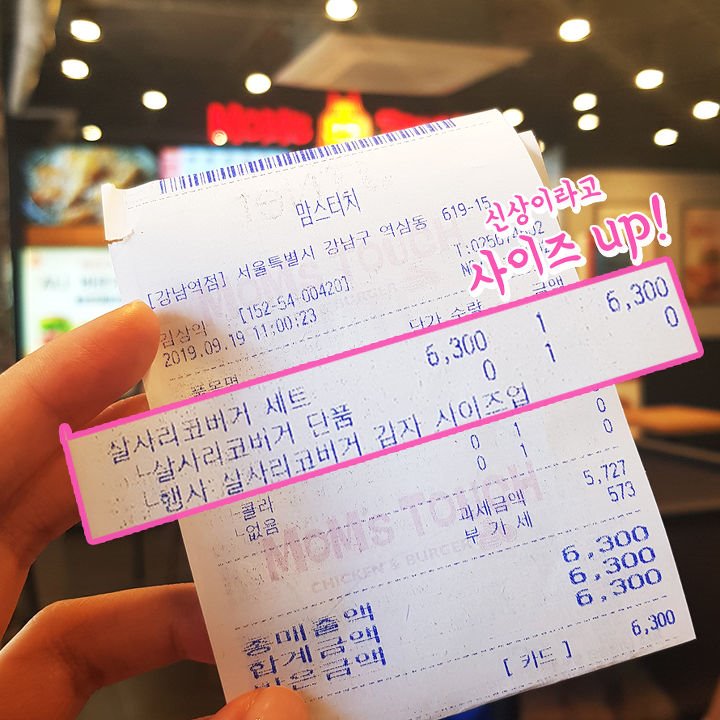 MOM's TOUCH
맘스터치
[강남역점] 서울특별시 강남구 역삼동 619-15
신상이라고
사이즈 up!
김상익 [152-54-00420]
2019.09.19 11:00:23
품목명 단가 수량 금액
살사리코버거 세트 6,300 1 6,300
└살사리코버거 단품 0 1 0
└행사 살사리코버거 감자 사이즈업
0 1 0
└콜라 0 1 0
└없음
과세금액 5,727
부 가 세 573
MOM'S TOUCH
CHICKEN & BURGER
총매출액 6,300
합계금액 6,300
받은금액 6,300
[ 카드 ] 6,300